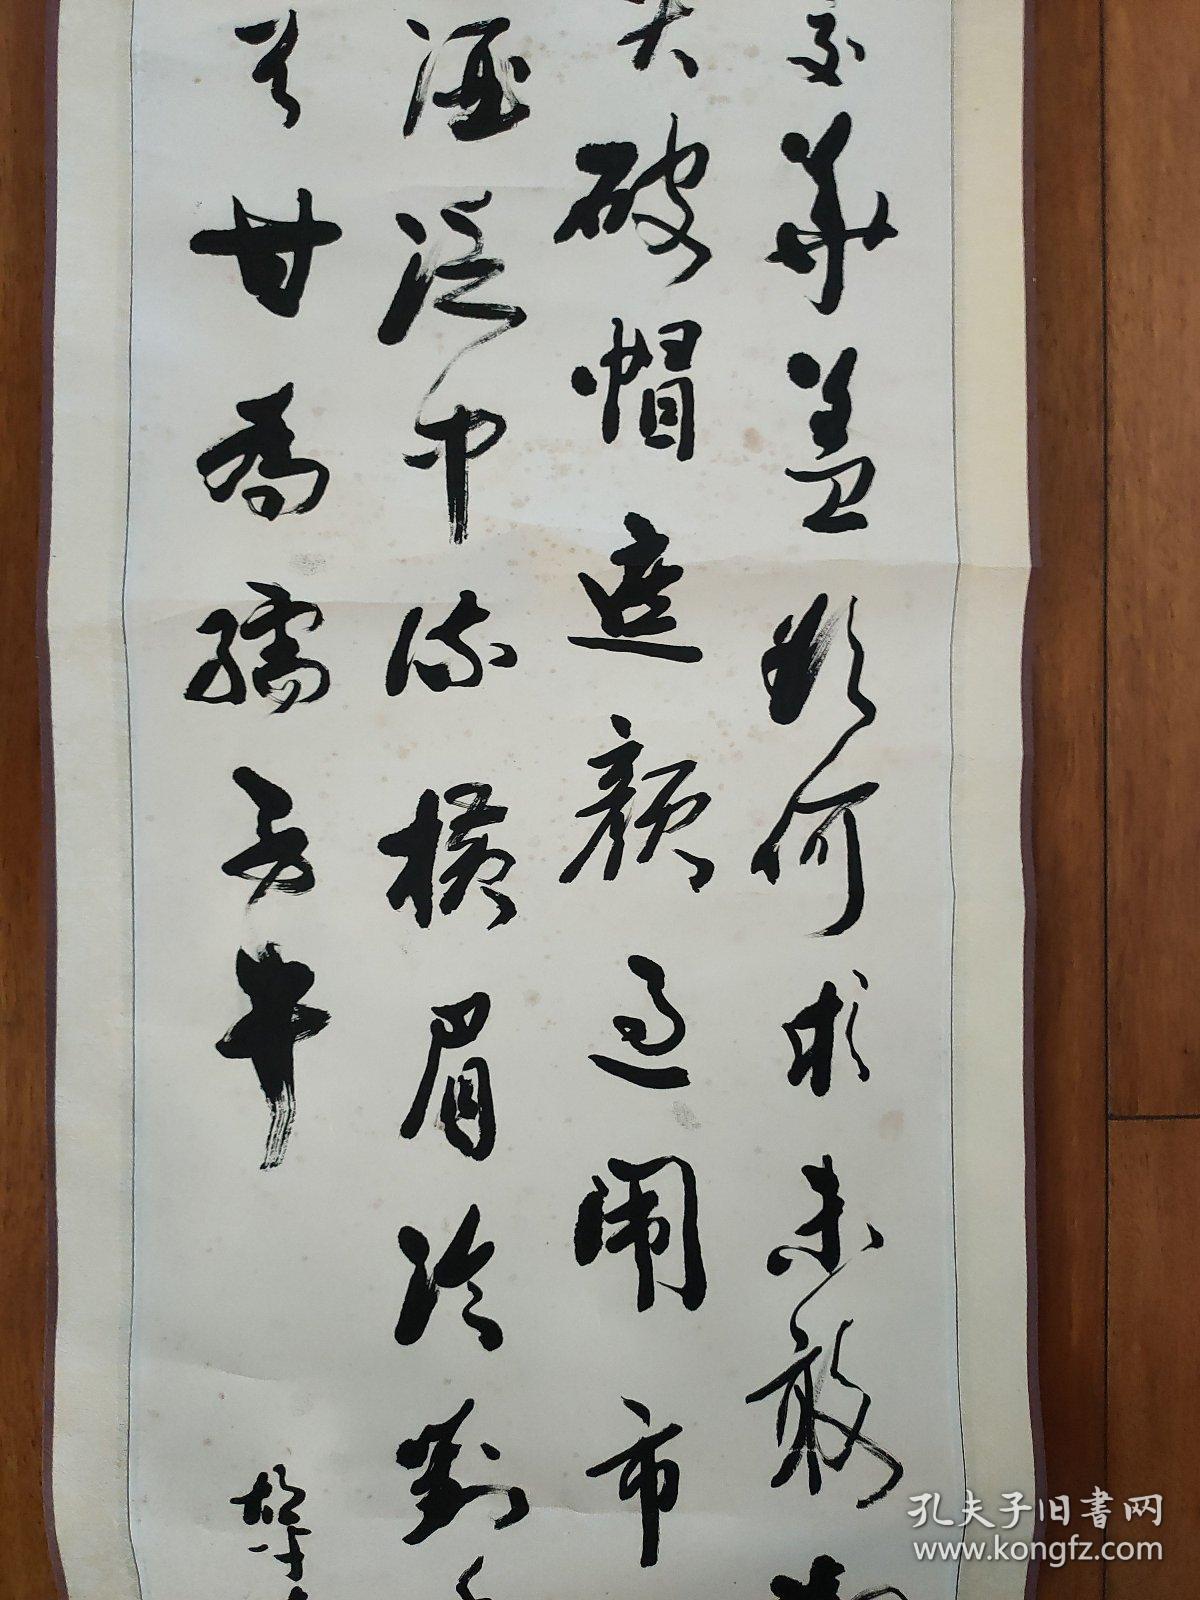 交華盖欲何求未敢
头破帽遮顔过闹市
酒泛中流横眉冷對
首甘為孺子牛
孔夫子旧书网
www.kongfz.com